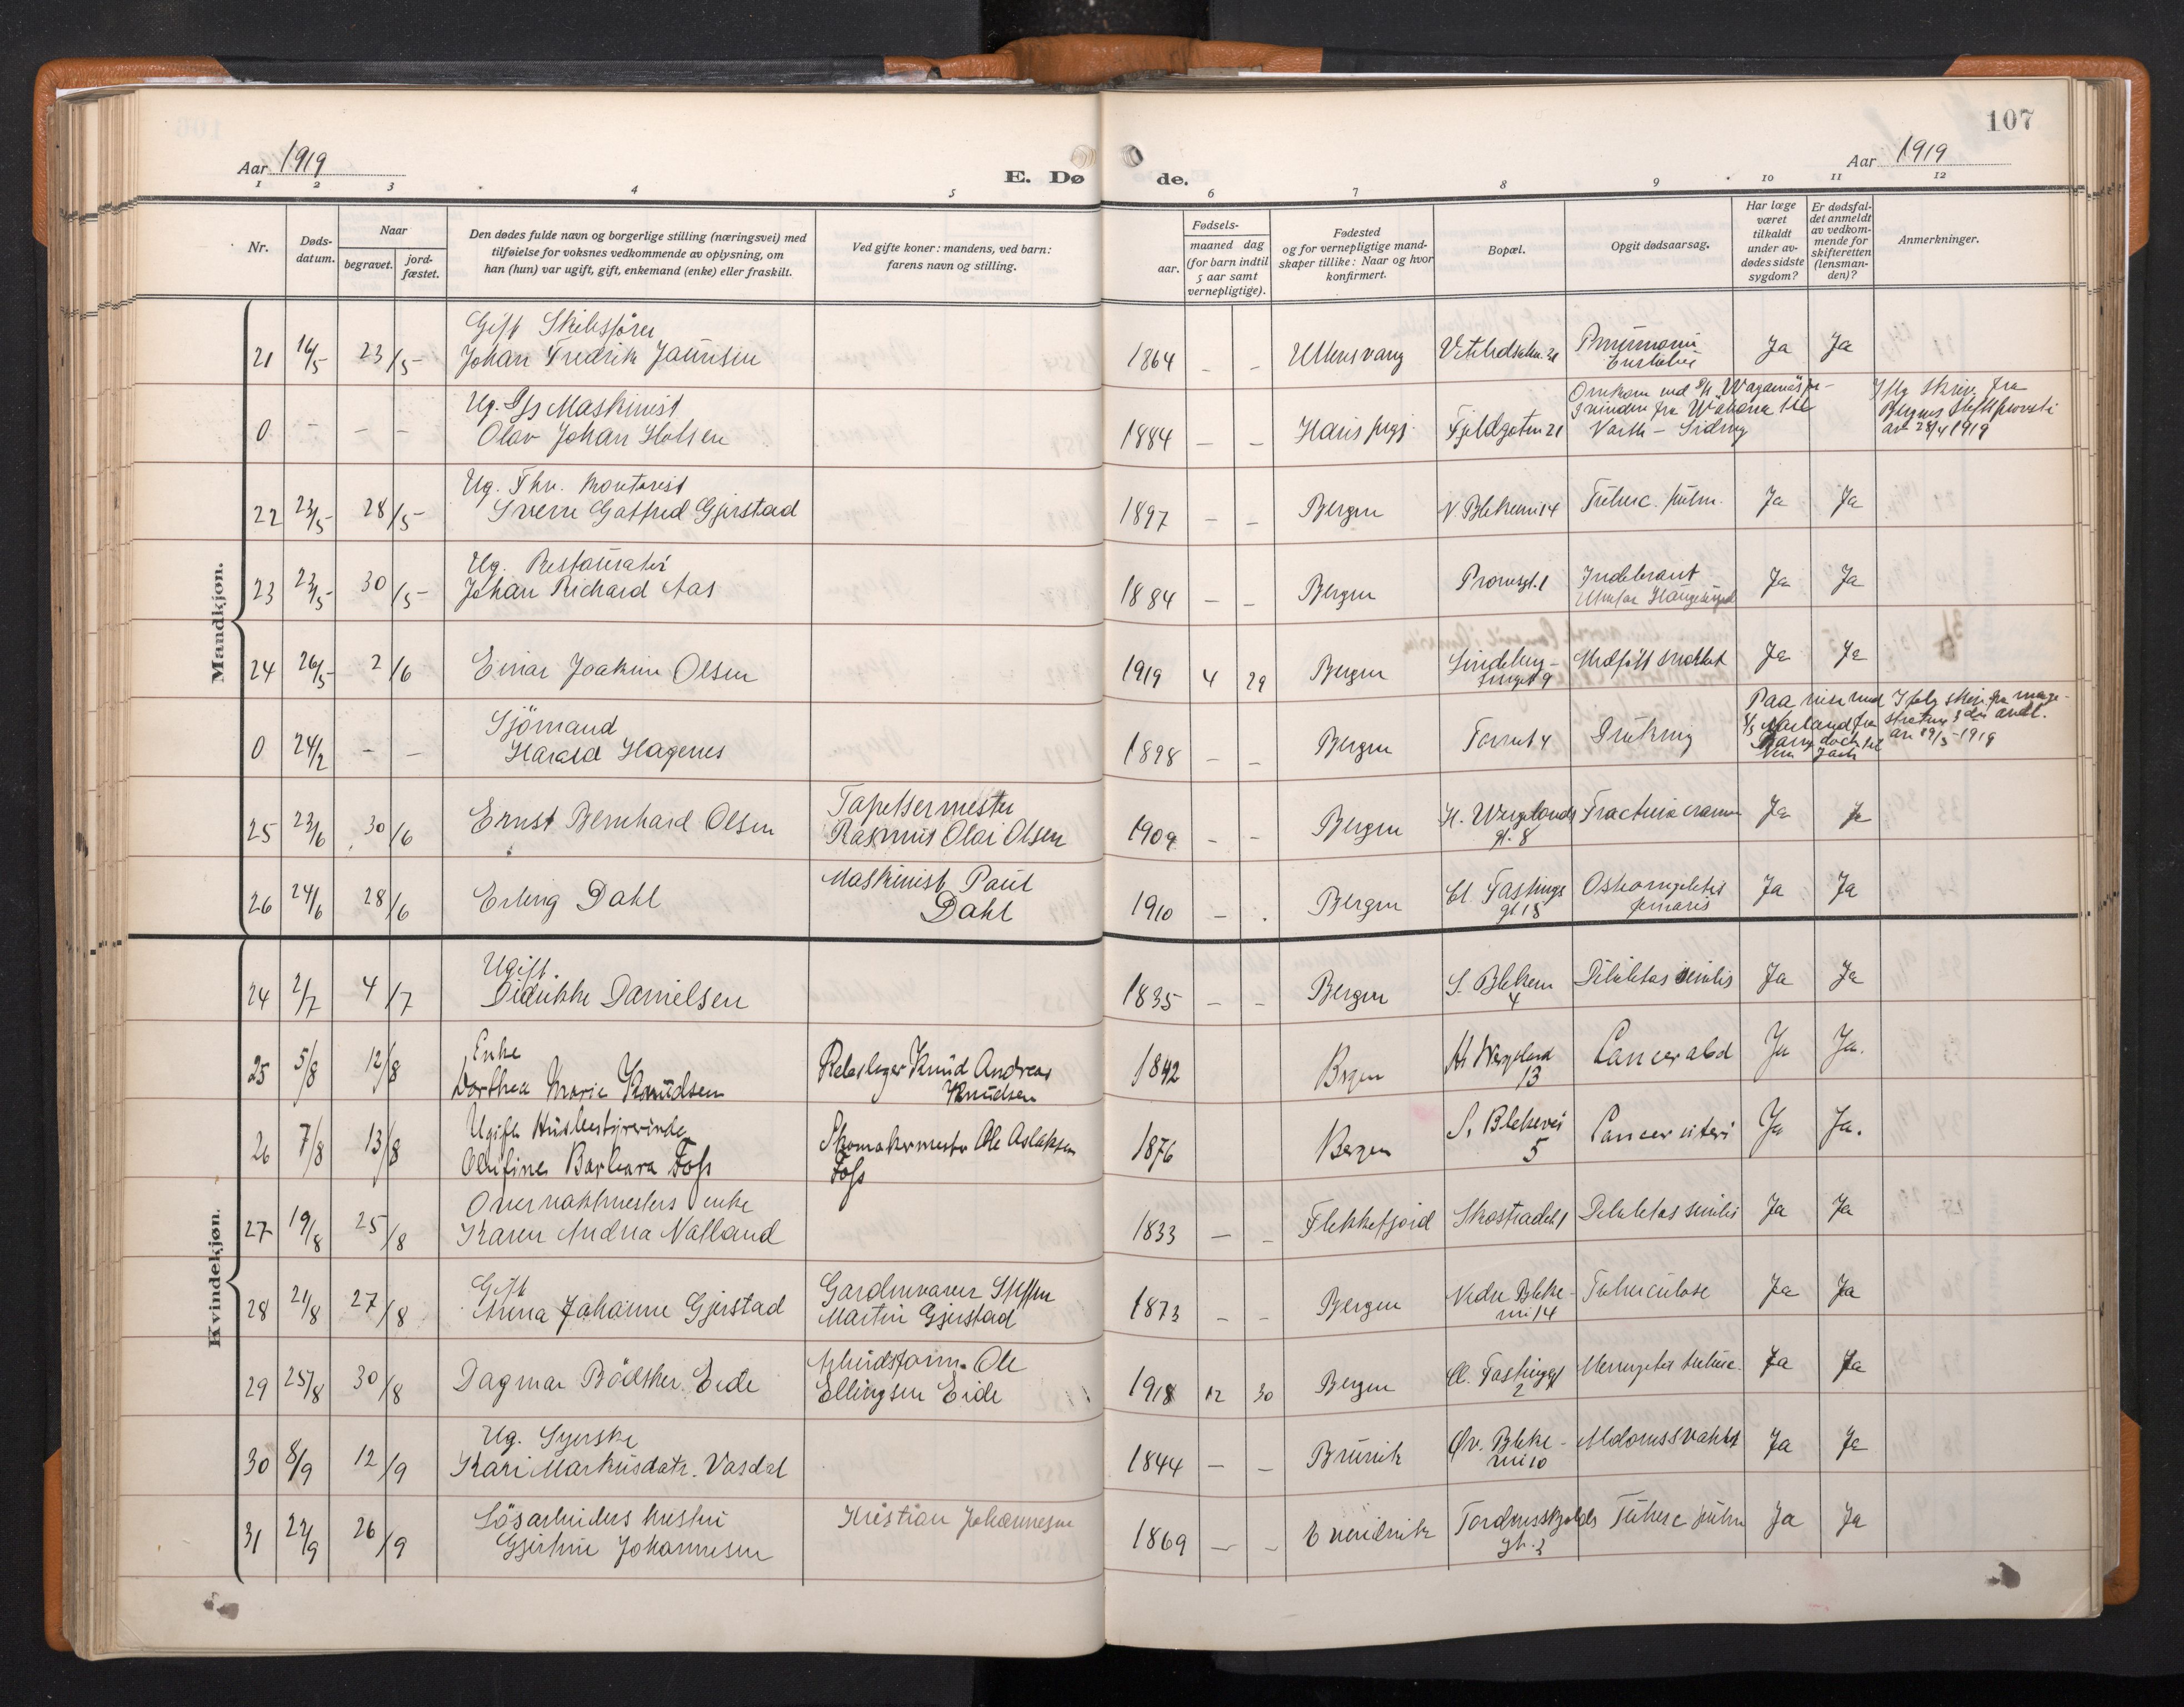 107
Aar 1919
E. Dø
de.
Aar 1919
1 2 3 4 5 6 7 8 9 10 11 12
Nr.
Døds-
datum.
Naar
begravet.
jord-
fæstet.
Den dødes fulde navn og borgerlige stilling (næringsvei) med
tilføielse for voksnes vedkommende av oplysning, om
han (hun) var ugift, gift, enkemand (enke) eller fraskilt.
Ved gifte koner: mandens, ved barn:
farens navn og stilling.
Fødsels-
aar.
maaned dag
(for barn indtil
5 aar samt
vernepligtige).
Fødested
og for vernepligtige mand-
skaper tillike: Naar og hvor
konfirmert.
Bopæl.
Opgit dødsaarsag.
Har læge
været
tilkaldt
under av-
dødes sidste
sygdom?
Er dødsfal-
det anmeldt
av vedkom-
mende for
skifteretten
(lensman-
den)?
Anmerkninger.
Mandkjøn.
Gift Skibsfører
21 16/5 23/5 Johan Fredrik 1864 – – Ullensvang Ja Ja
Ug. Maskinist
0 – – – Olav Johan Holsen 1884 – – Fjeldgaten 21
av 28/4 1919
Ug.
22 23/5 28/5 Sverre Gotfred Gjerstad 1897 – – Bergen N. Blekevei 14 Tuberc. pulm. Ja Ja
Ug. Restauratør
23 23/5 30/5 Johan Richard Aas 1884 – – Bergen Ja Ja
24 26/5 2/6 Einar Joakim Olsen 1919 4 29 Bergen Medfødt svakhet Ja Ja
Sjömand
0 24/2 – – Harald Hagenes 1898 – – Bergen Drukning
Tapetsermester
25 23/6 30/6 Ernst Bernhard Olsen Rasmus Olai Olsen 1909 – – Bergen H. Wergelands
gt. 8 Fractura Ja Ja
Maskinist Paul
26 24/6 28/6 Erling Dahl Dahl 1910 – Bergen Cl. Fastings
gt 18 Ja Ja
Kvindekjøn.
Ugift.
24 2/7 4/7 Didrikke Danielsen 1835 – – Bergen S. Blekevei
4 Debilitas senilis Ja Ja
Enke
25 5/8 12/8 Dorthea Marie Knudsen Rebslager Knud Andreas
Knudsen 1842 Bergen H. Wergeland
13 Cancer abd Ja Ja.
Ugift Husbestyrerinde
26 7/8 13/8 Olufine Barbara Foss Skomakermester Ole Aslaksen
Foss 1876 Bergen S. Blekevei
5 Cancer uteri Ja Ja.
Overvaktmesters enke
27 19/8 25/8 Karen Andrea Natland 1833 – – Flekkefjord Skostrædet 1 Debilitas senilis Ja Ja
Gift
28 21/8 27/8 Anna Johanne Gjerstad Steffen
Martin Gjerstad 1873 – – Bergen Nedre Bleke-
vei 14 Tuberculose Ja Ja
29 25/8 30/8 Dagmar Bödtker Eide Arbeidsform. Ole
Ellingsen Eide 1918 12 30 Bergen Cl. Fastingsgt
2 Ja Ja
Ug. Syerske
30 8/9 12/9 Kari Markusdatr. Vasdal 1844 – – Bruvik Øv. Bleke-
vei 10 Alderdomssvakhet Ja Ja
Løsarbeiders hustru
31 22/9 26/9 Gjertine Johannesen Kristian Johannesen 1869 – – Evenvik Tordenskjolds
gt. 3 Tuberc pulm Ja Ja